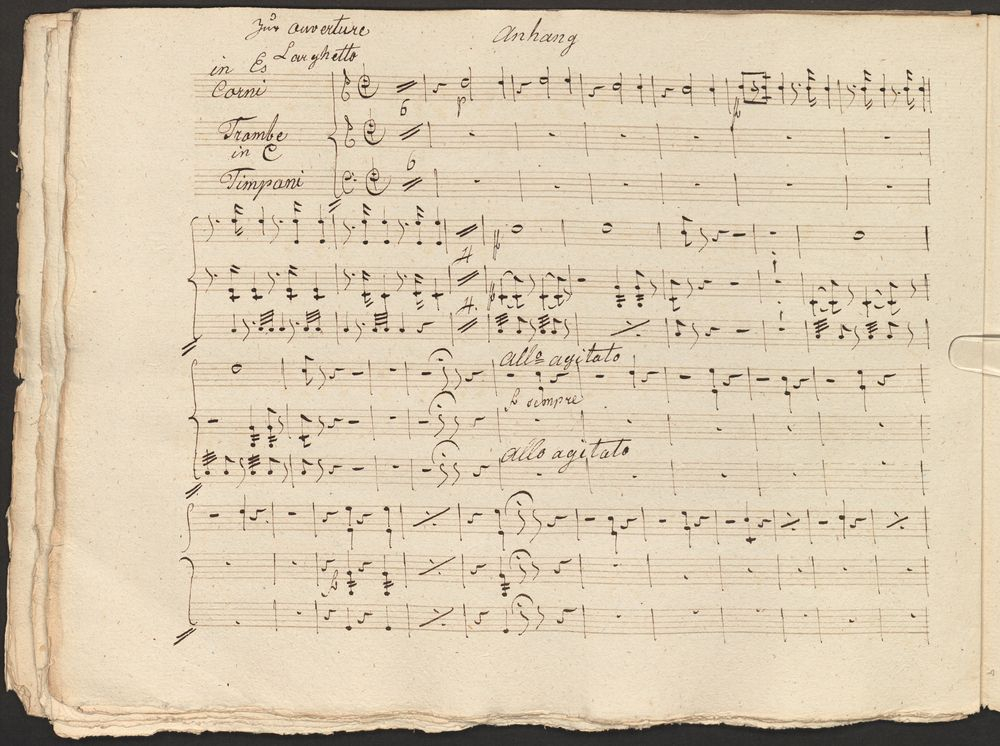 Zur Ouverture Anhang
Larghetto
in Es
Corni
6
Trombe
in C
6
Timpani
4
4.
Allo agitato
fo sempre
Allo agitato
fo